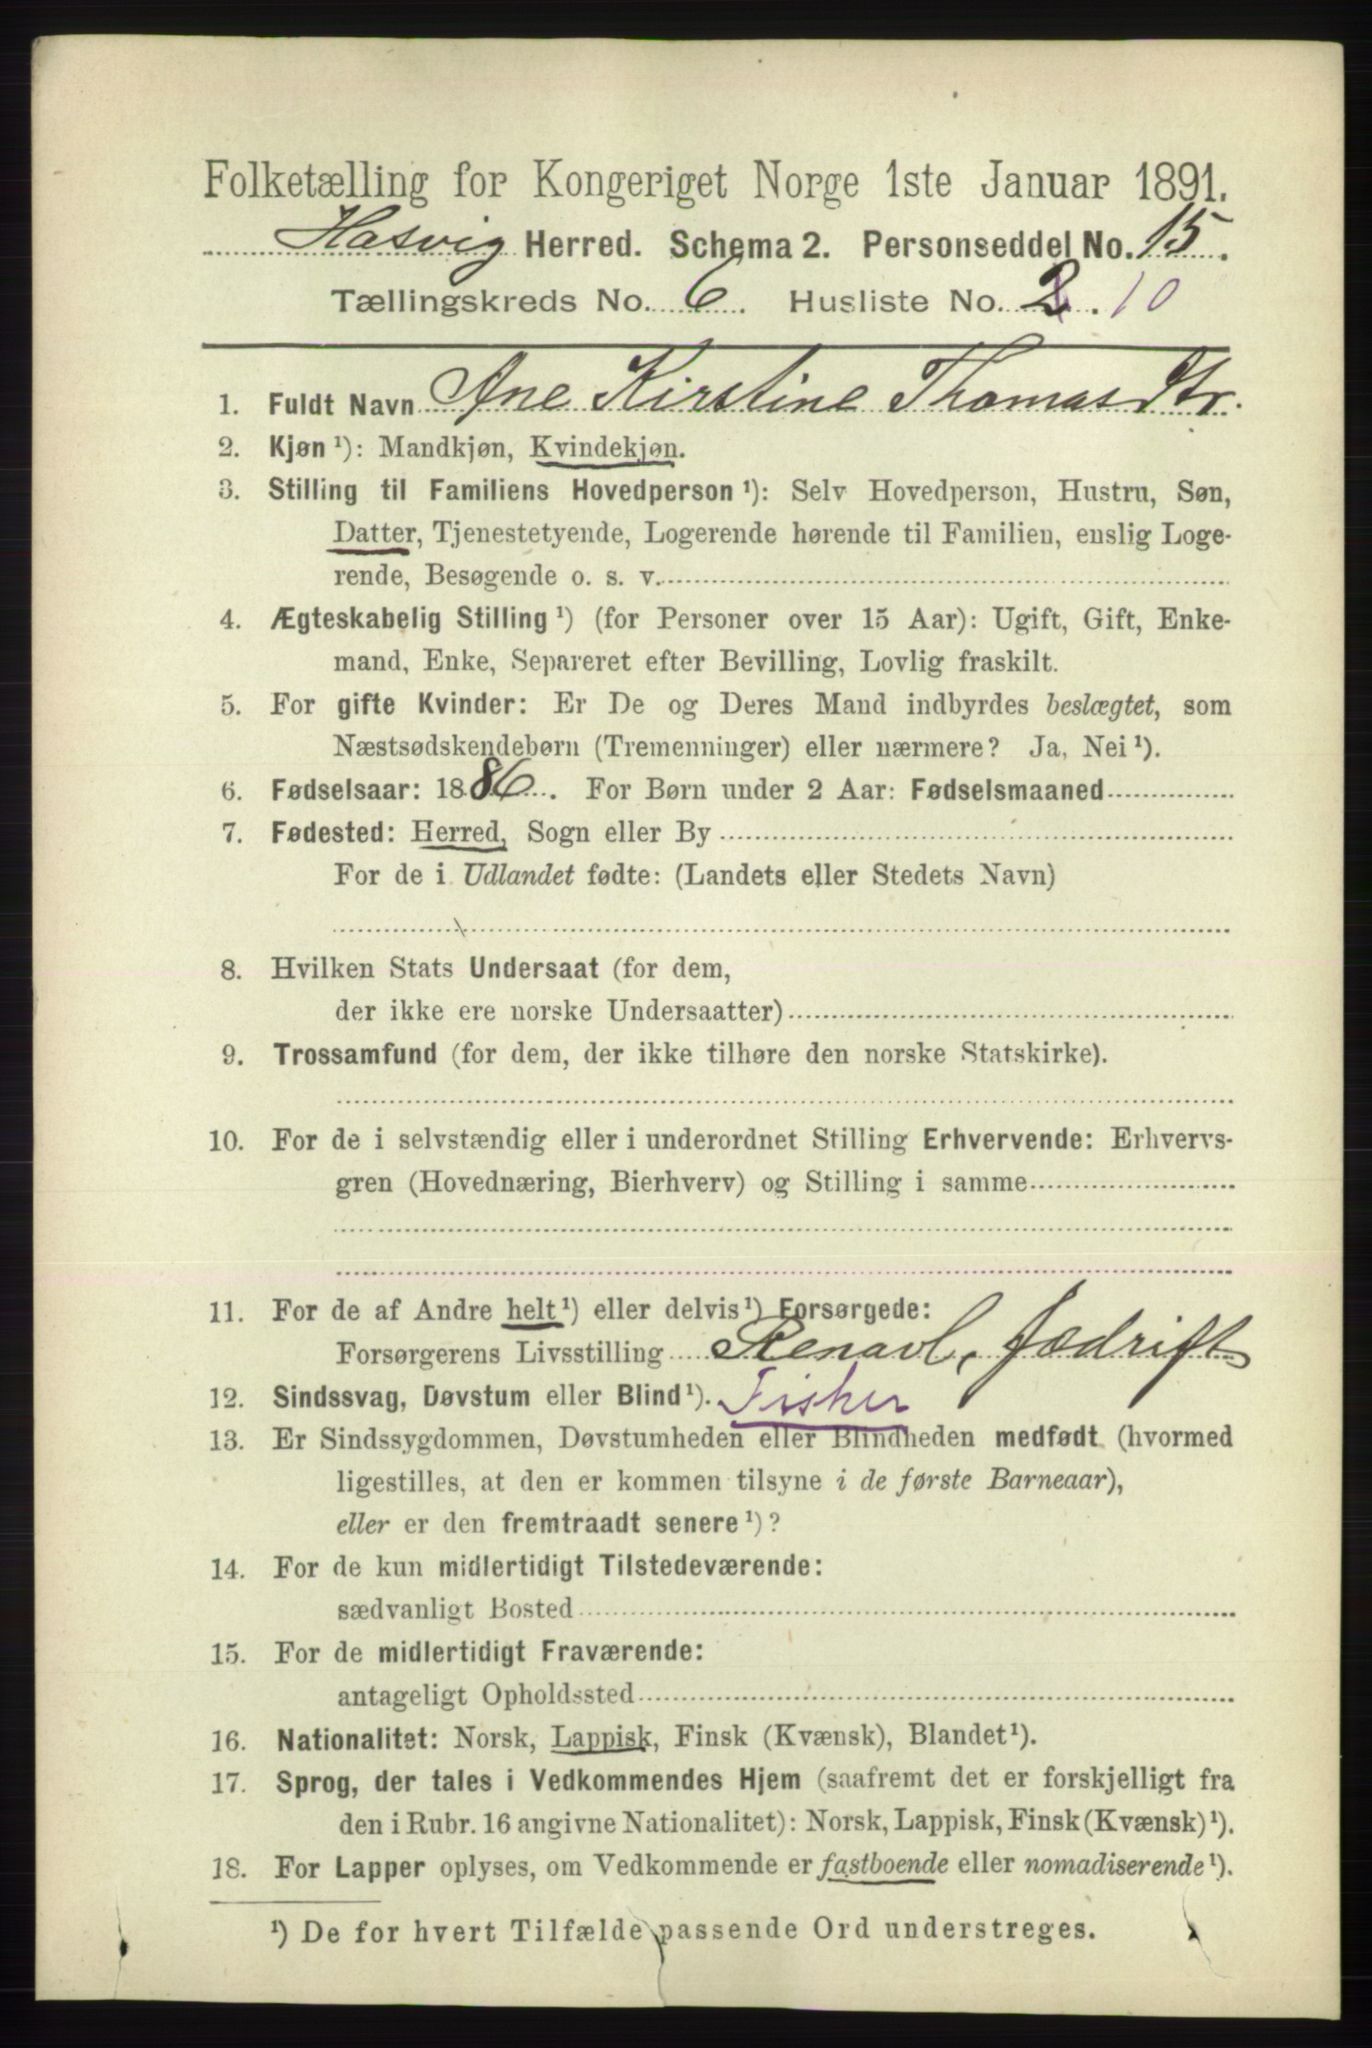 Folketælling for Kongeriget Norge 1ste Januar 1891.
Hasvig Herred. Schema 2. Personseddel No. 15.
Tællingskreds No. 6. Husliste No. 2. 10
1. Fuldt Navn Ane Kirstine Thomasdtr.
2. Kjøn¹): Mandkjøn, Kvindekjøn.
3. Stilling til Familiens Hovedperson¹): Selv Hovedperson, Hustru, Søn,
Datter, Tjenestetyende, Logerende hørende til Familien, enslig Loge-
rende, Besøgende o. s. v.
4. Ægteskabelig Stilling¹) (for Personer over 15 Aar): Ugift, Gift, Enke-
mand, Enke, Separeret efter Bevilling, Lovlig fraskilt.
5. For gifte Kvinder: Er De og Deres Mand indbyrdes beslægtet, som
Næstsødskendebørn (Tremenninger) eller nærmere? Ja, Nei¹).
6. Fødselsaar: 1886. For Børn under 2 Aar: Fødselsmaaned
7. Fødested: Herred, Sogn eller By
For de i Udlandet fødte: (Landets eller Stedets Navn)
8. Hvilken Stats Undersaat (for dem,
der ikke ere norske Undersaatter)
9. Trossamfund (for dem, der ikke tilhøre den norske Statskirke).
10. For de i selvstændig eller i underordnet Stilling Erhvervende: Erhvervs-
gren (Hovednæring, Bierhverv) og Stilling i samme
11. For de af Andre helt¹) eller delvis¹) Forsørgede:
Forsørgerens Livsstilling
12. Sindssvag, Døvstum eller Blind¹). Fisker
13. Er Sindssygdommen, Døvstumheden eller Blindheden medfødt (hvormed
ligestilles, at den er kommen tilsyne i de første Barneaar),
eller er den fremtraadt senere¹)?
14. For de kun midlertidigt Tilstedeværende:
sædvanligt Bosted
15. For de midlertidigt Fraværende:
antageligt Opholdssted
16. Nationalitet: Norsk, Lappisk, Finsk (Kvænsk), Blandet¹).
17. Sprog, der tales i Vedkommendes Hjem (saafremt det er forskjelligt fra
den i Rubr. 16 angivne Nationalitet): Norsk, Lappisk, Finsk (Kvænsk)¹).
18. For Lapper oplyses, om Vedkommende er fastboende eller nomadiserende¹).
¹) De for hvert Tilfælde passende Ord understreges.